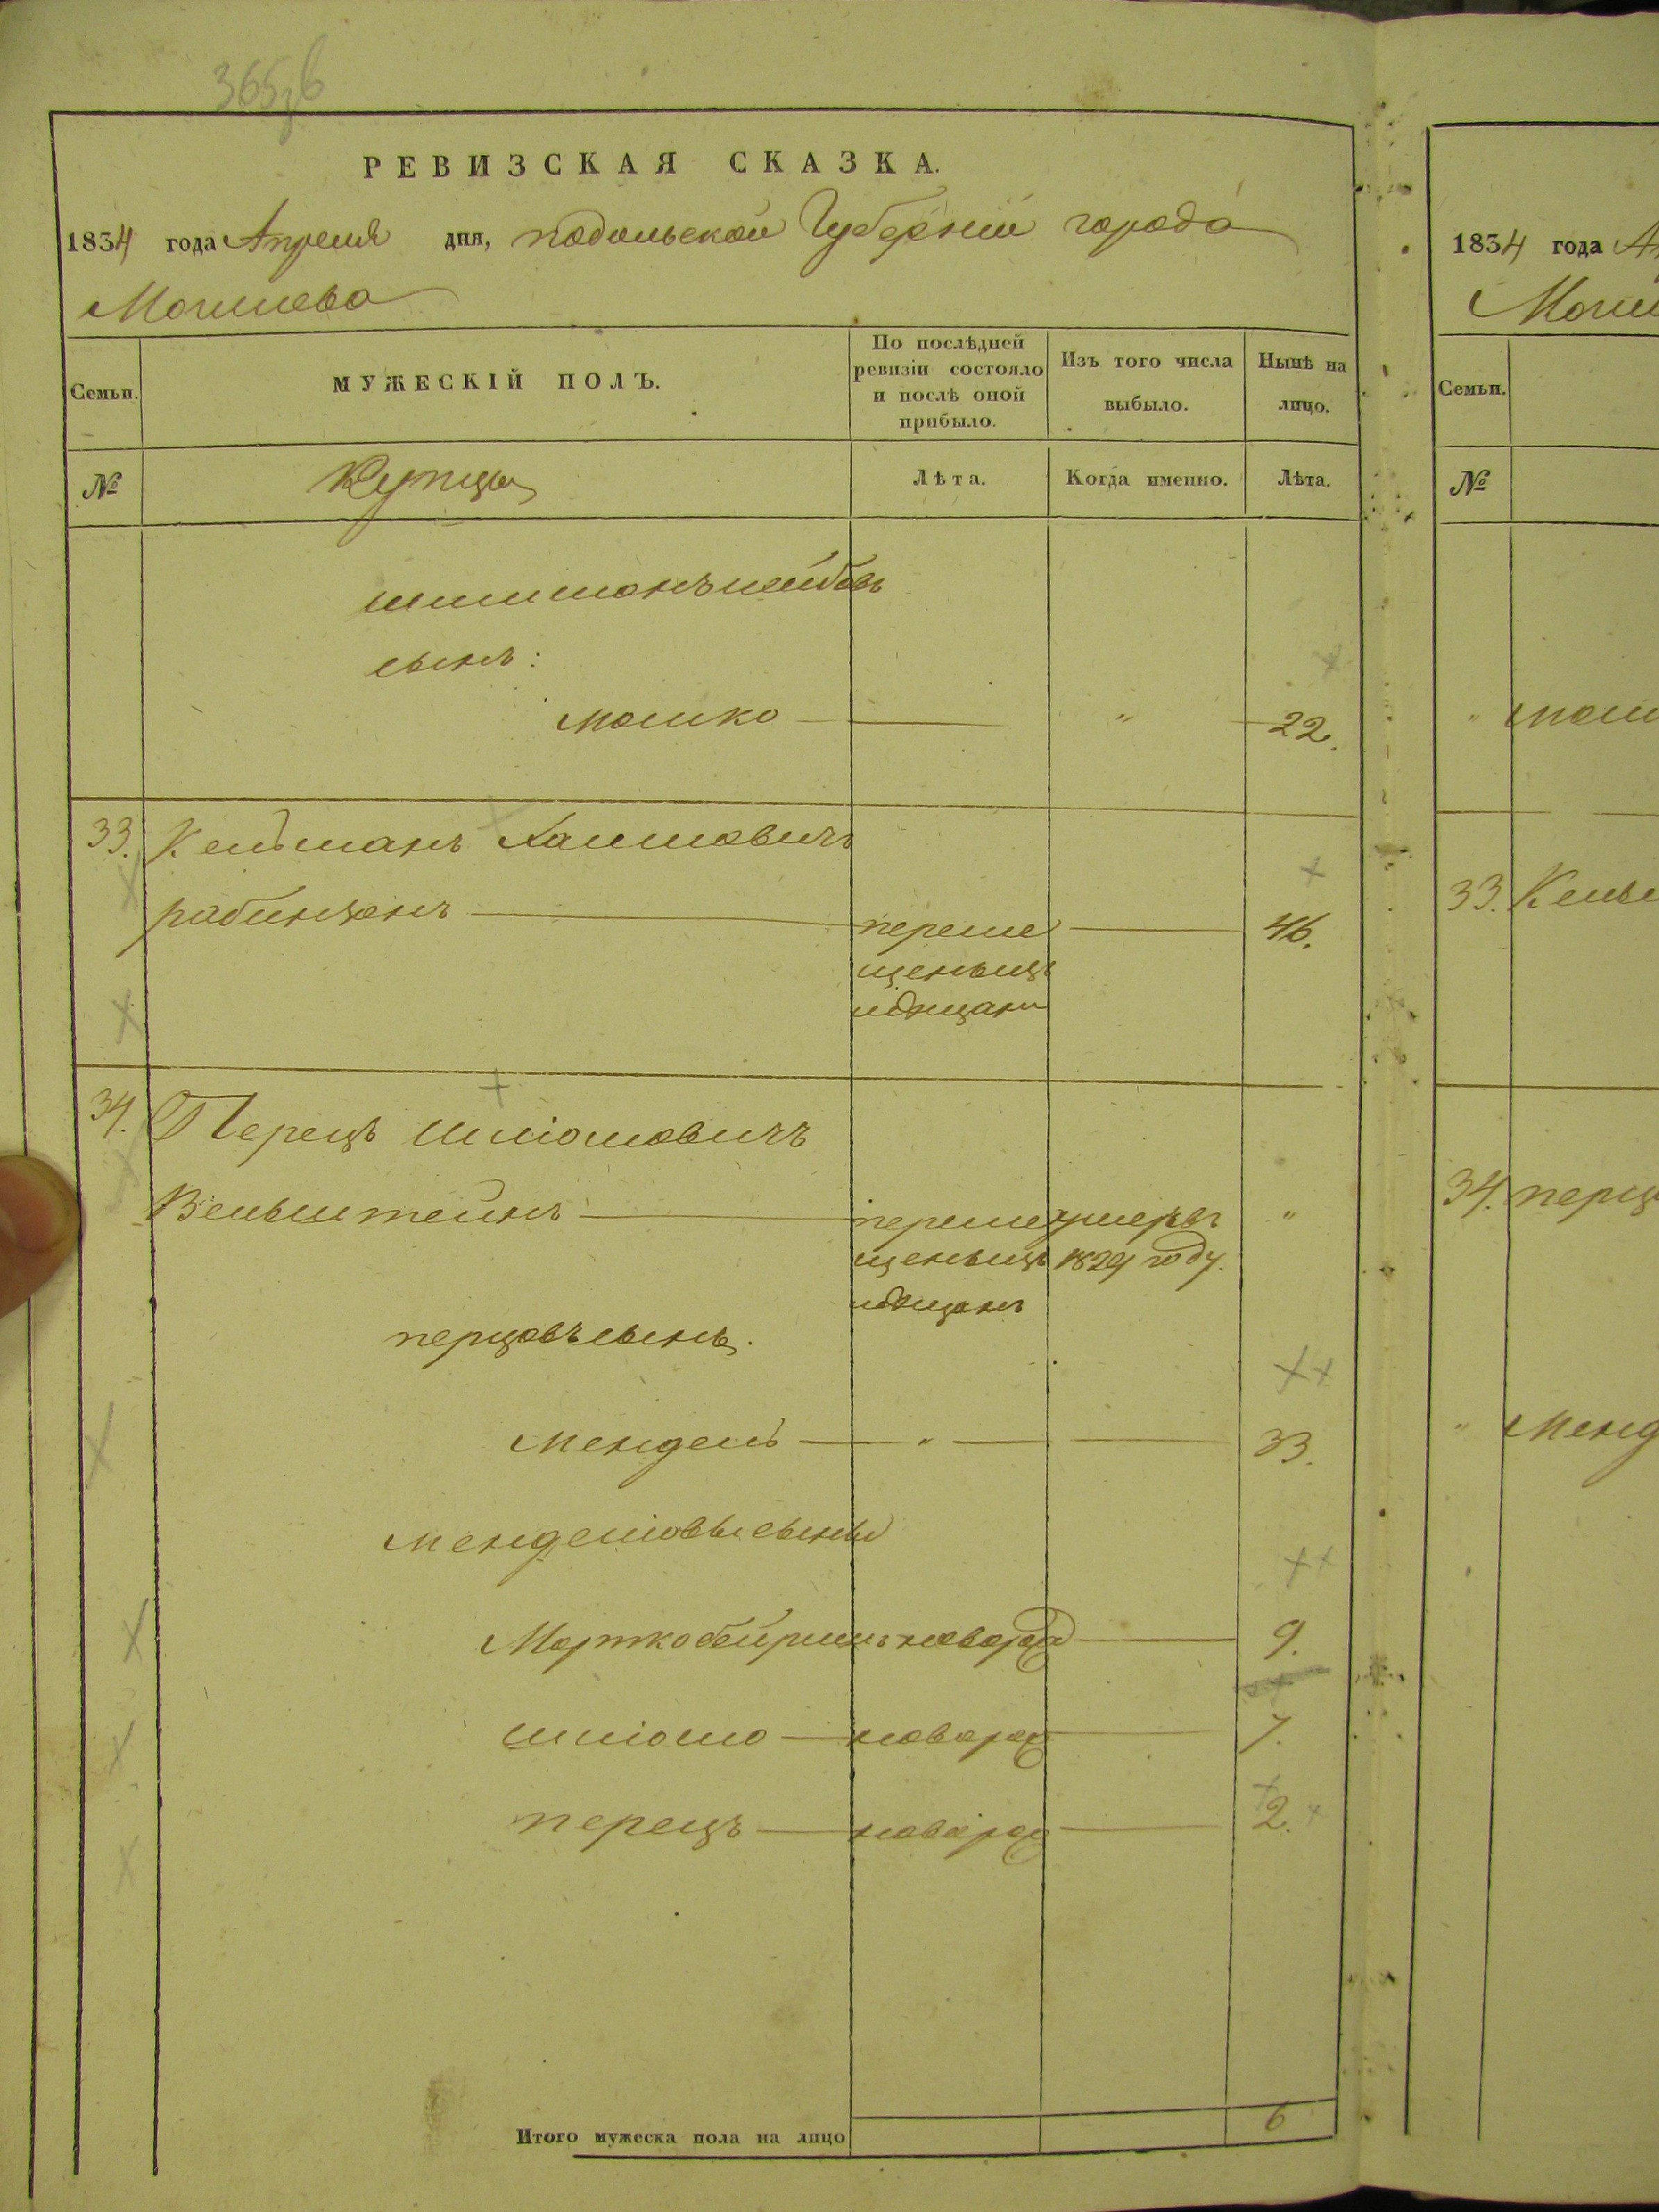 РЕВИЗСКАЯ СКАЗКА.
1834 года Апреля дня, подольской Губернии города
Могилева
Семьи.
МУЖЕСКІЙ ПОЛЪ.
По послѣдней ревизіи состояло и послѣ оной прибыло.
Изъ того числа выбыло.
Нынѣ на лицо.
№
Купцы
Лѣта.
Когда именно.
Лѣта.
сынъ:
Мошко — " 22.
33. Кельманъ Хаимовичъ
рабинзонъ — 46.
34. Перецъ Шліомовичъ
Вельштейнъ — умеръ въ "
1829 году.
перцовъ сынъ.
Мендель — " — 33.
Менделіовы сыны
Мортко бейришъ новорож 9.
Шліомо — новорож 7.
перецъ — новорож 2.
Итого мужеска пола на лицо 6
1834 года
Семьи.
№
33.
34.